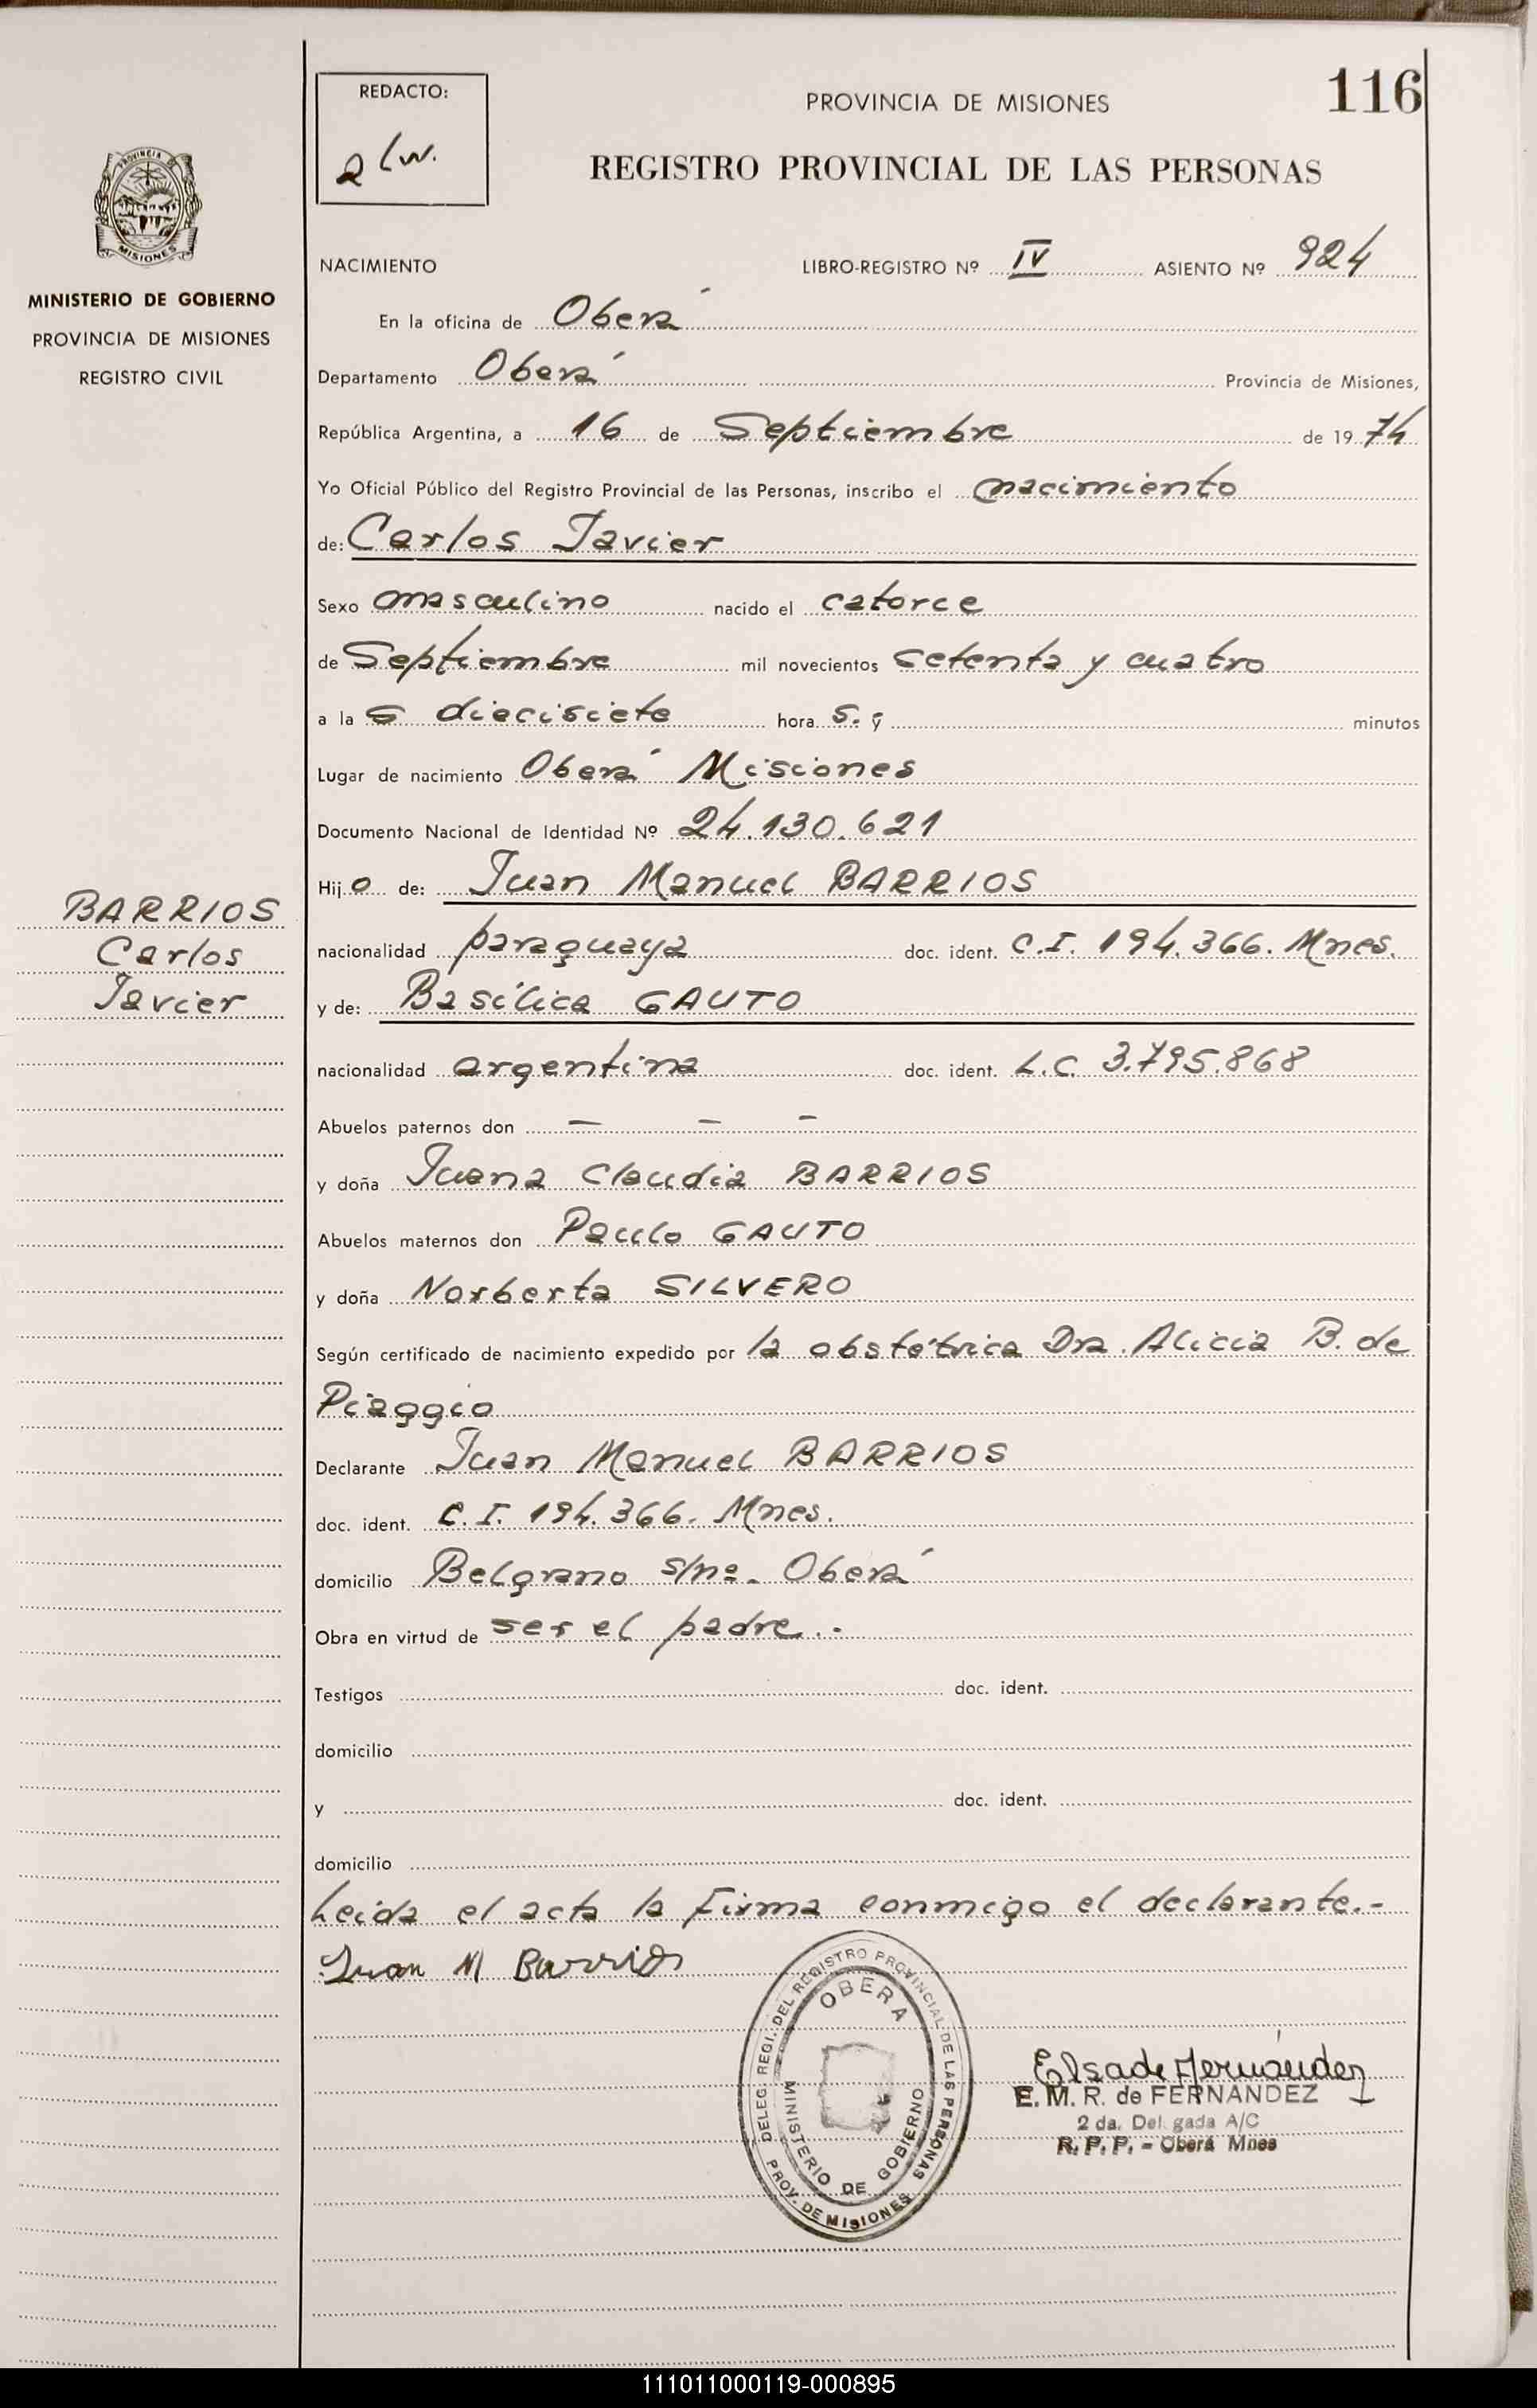 116
REDACTO:
PROVINCIA DE MISIONES
REGISTRO PROVINCIAL DE LAS PERSONAS
PROVINCIA DE
MISIONES
MINISTERIO DE GOBIERNO
PROVINCIA DE MISIONES
REGISTRO CIVIL
NACIMIENTO LIBRO-REGISTRO Nº IV ASIENTO Nº 924
En la oficina de Oberá
Departamento Oberá Provincia de Misiones,
República Argentina, a 16 de Septiembre de 1974
Yo Oficial Público del Registro Provincial de las Personas, inscribo el nacimiento
de: Carlos Javier
Sexo masculino nacido el catorce
de Septiembre mil novecientos setenta y cuatro
a las diecisiete hora s. y minutos
Lugar de nacimiento Oberá Misiones
Documento Nacional de Identidad Nº 24.130.621
Hijo de: Juan Manuel BARRIOS
BARRIOS
Carlos
Javier
nacionalidad paraguaya doc. ident. C.I. 194.366. Mnes.
y de: Basílica GAUTO
nacionalidad argentina doc. ident. L.C. 3.795.868
Abuelos paternos don — — —
y doña Juana Claudia BARRIOS
Abuelos maternos don Paulo GAUTO
y doña Norberta SILVERO
Según certificado de nacimiento expedido por la obstétrica Dra. Alicia B. de
Piaggio
Declarante Juan Manuel BARRIOS
doc. ident. C.I. 194.366. Mnes.
domicilio Belgrano s/nº. Oberá
Obra en virtud de ser el padre.-
Testigos doc. ident.
domicilio
y doc. ident.
domicilio
Leida el acta la firma conmigo el declarante.-
Juan M Barrios
DELEG. REGI. DEL REGISTRO PROVINCIAL DE LAS PERSONAS
OBERA
MINISTERIO DE GOBIERNO
PROV. DE MISIONES
Elsa de Fernández
E. M. R. de FERNANDEZ
2 da. Del gada A/C
R. P. P. - Oberá Mnes
111011000119-000895